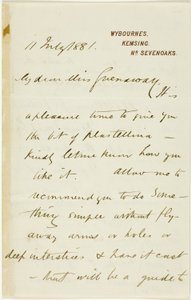 WYBOURNES,
KEMSING,
Nr SEVENOAKS.
11 July 1881.
My dear Miss Greenaway It is
a pleasure to me to give you
the bit of plastilina —
kindly let me know how you
like it. Allow me to
recommend you to do some-
thing simple without fly-
away arms or holes or
deep interstices & have it cast
— that will be a guide to